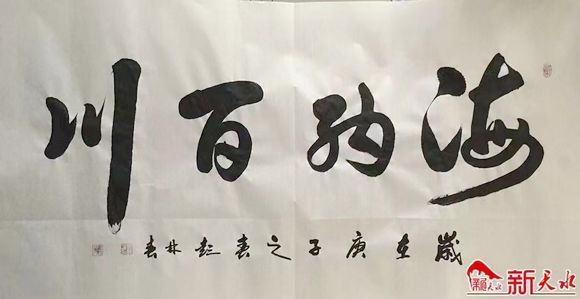 海纳百川
歲在庚子之春 林
新天水